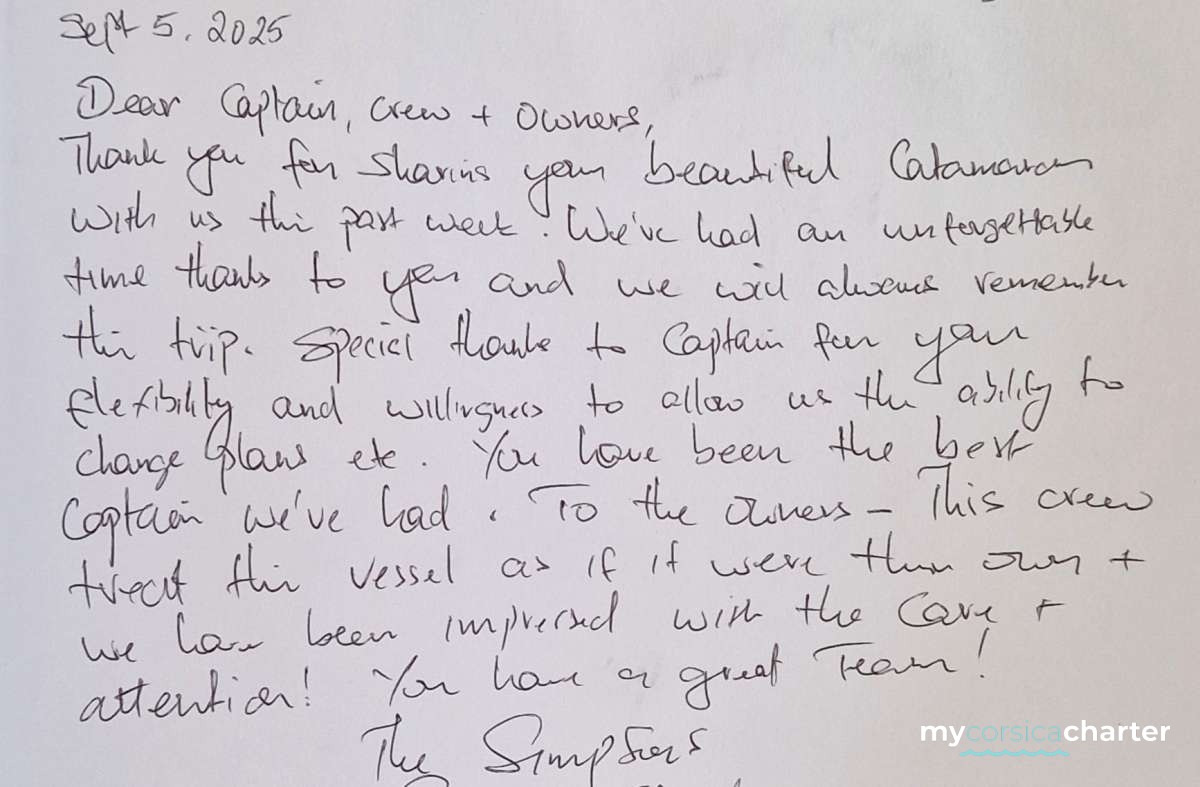 Sept 5, 2025
Dear Captain, Crew + Owners,
Thank you for sharing your beautiful Catamaran
with us this past week. We've had an unforgettable
time thanks to you and we will always remember
this trip. Special thanks to Captain for your
flexibility and willingness to allow us the ability to
change plans etc. You have been the best
Captain we've had. To the owners - This crew
treat this vessel as if it were their own +
we have been impressed with the Care +
attention! You have a great Team!
The Simpsons
mycorsicacharter